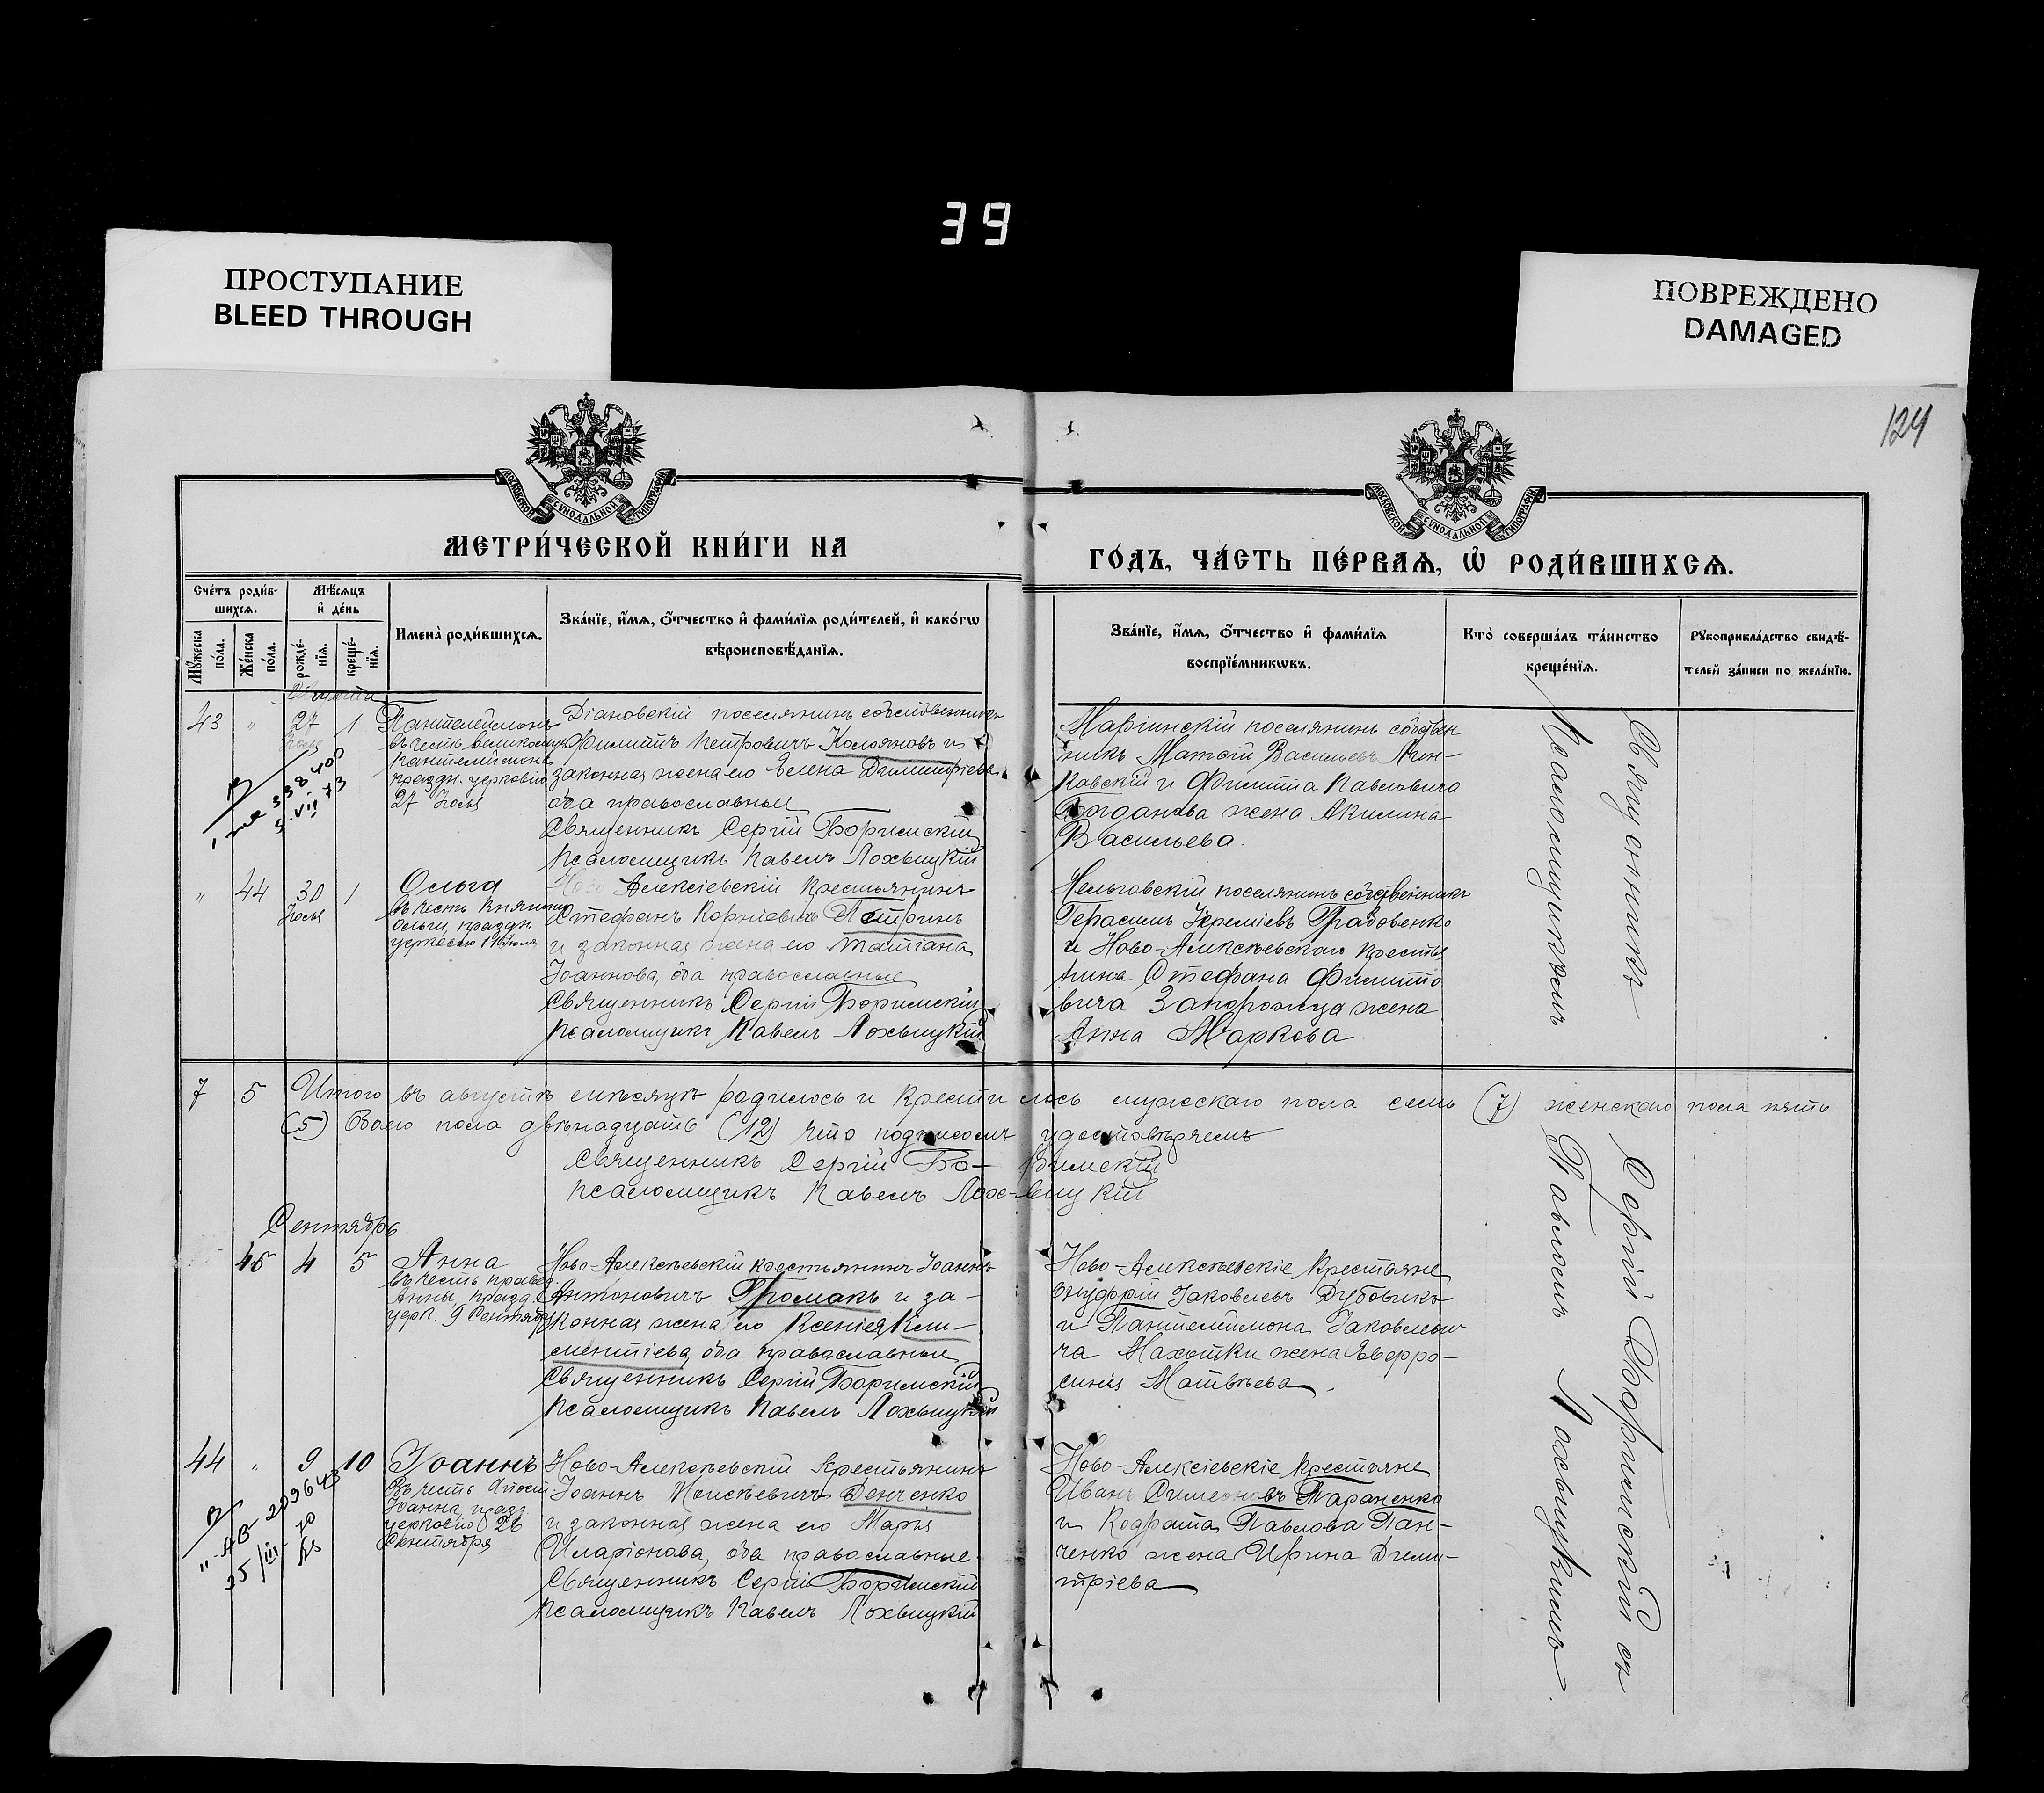 39
ПРОСТУПАНИЕ
BLEED THROUGH
ПОВРЕЖДЕНО
DAMAGED
124
МОСКОВСКОЙ СѴНОДАЛЬНОЙ ТИПОГРАФІИ
МОСКОВСКОЙ СѴНОДАЛЬНОЙ ТИПОГРАФІИ
МЕТРИ́ЧЕСКОЙ КНИ́ГИ НА
ГО́ДЪ, ЧА́СТЬ ПЕ́РВАѦ, Ѡ҆ РОДИ́ВШИХСѦ.
Сче́тъ роди́в-
шихсѧ.
Мѹ́жеска по́ла.
Же́нска по́ла.
Мѣ́сѧцъ
и҆ де́нь
рожде́-
нїѧ.
креще́-
нїѧ.
Имена̀ роди́вшихсѧ.
Зва́нїе, и҆́мѧ, ѻ҆́тчество и҆ фами́лїѧ роди́телей, и҆ како́гѡ
вѣроисповѣ́данїѧ.
Зва́нїе, и҆́мѧ, ѻ҆́тчество и҆ фами́лїѧ
воспрїе́мникѡвъ.
Кто̀ соверша́лъ та́инство
креще́нїѧ.
Рѹкоприкла́дство свидѣ́-
телей за́писи по жела́нїю.
Августъ
43 " 27 1
Іюля
Пантелеимонъ
въ честь великомуч.
Пантелеимона
праздн. церковію
27 Іюля
338400
5-VII 73
Діановскій поселянинъ собственникъ
Филиппъ Петровичъ Колояновъ и
законная жена его Елена Димитріева
оба православные
Священникъ Сергій Боримскій
Псаломщикъ Павелъ Лохвицкій
Маріинскій поселянинъ собствен
никъ Матвій Васильевъ
ковскій и Филиппа Павловича
Богданова жена Акилина
Васильева.
" 44 30 1
Іюля
Ольга
въ честь княгини
Ольги, праздн.
церковію 11 Іюля
Ново-Алексіевскій крестьянинъ
Стефанъ Корніевичъ Петринъ
и законная жена его Татіана
Іоаннова, оба православные
Священникъ Сергій Боримскій
Псаломщикъ Павелъ Лохвицкій
Нельговскій поселянинъ собственникъ
Герасимъ Іереміевъ Грабовенко
и Ново-Алексѣевскаго крестья
нина Стефана Филиппо
вича Запорожца жена
Анна Маркова.
7 5 Итого въ августѣ мѣсяцѣ родилось и крестилось мужскаго пола семь (7) женскаго пола пять
(5) обоего пола двѣнадцать (12) что подписомъ удостовѣряемъ
Священникъ Сергій Бо-римскій
Псаломщикъ Павелъ Лох-вицкій
Сентябрь
45 4 5
Анна
въ честь правед.
Анны, празд.
церк. 9 Сентября
Ново-Алексѣевскій крестьянинъ Іоаннъ
Антоновичъ Громакъ и за-
конная жена его Ксенія Кли-
ментіева, оба православные
Священникъ Сергій Боримскій
Псаломщикъ Павелъ Лохвицкій
Ново-Алексѣевскіе крестьяне
Онуфрій Іаковлевъ Дубовикъ
и Пантелеимона Іаковлеви
ча Махотки жена Евфро-
синія Матвѣева.
44 " 9 10
Іоаннъ
въ честь Апост.
Іоанна, празд.
церковію 26
Сентября
АВ-209643
25/III-70
Ново-Алексѣевскій крестьянинъ
Іоаннъ Моисѣевичъ Денченко
и законная жена его Марья
Иларіонова, оба православные
Священникъ Сергій Боримскій
Псаломщикъ Павелъ Лохвицкій
Ново-Алексіевскіе крестьяне
Иванъ Симеоновъ Тараненко
и Кодрата Павлова Пан-
ченко жена Ирина Дими-
тріева
Священникъ Сергій Боримскій съ
Псаломщикомъ Павломъ Лохвицкимъ.